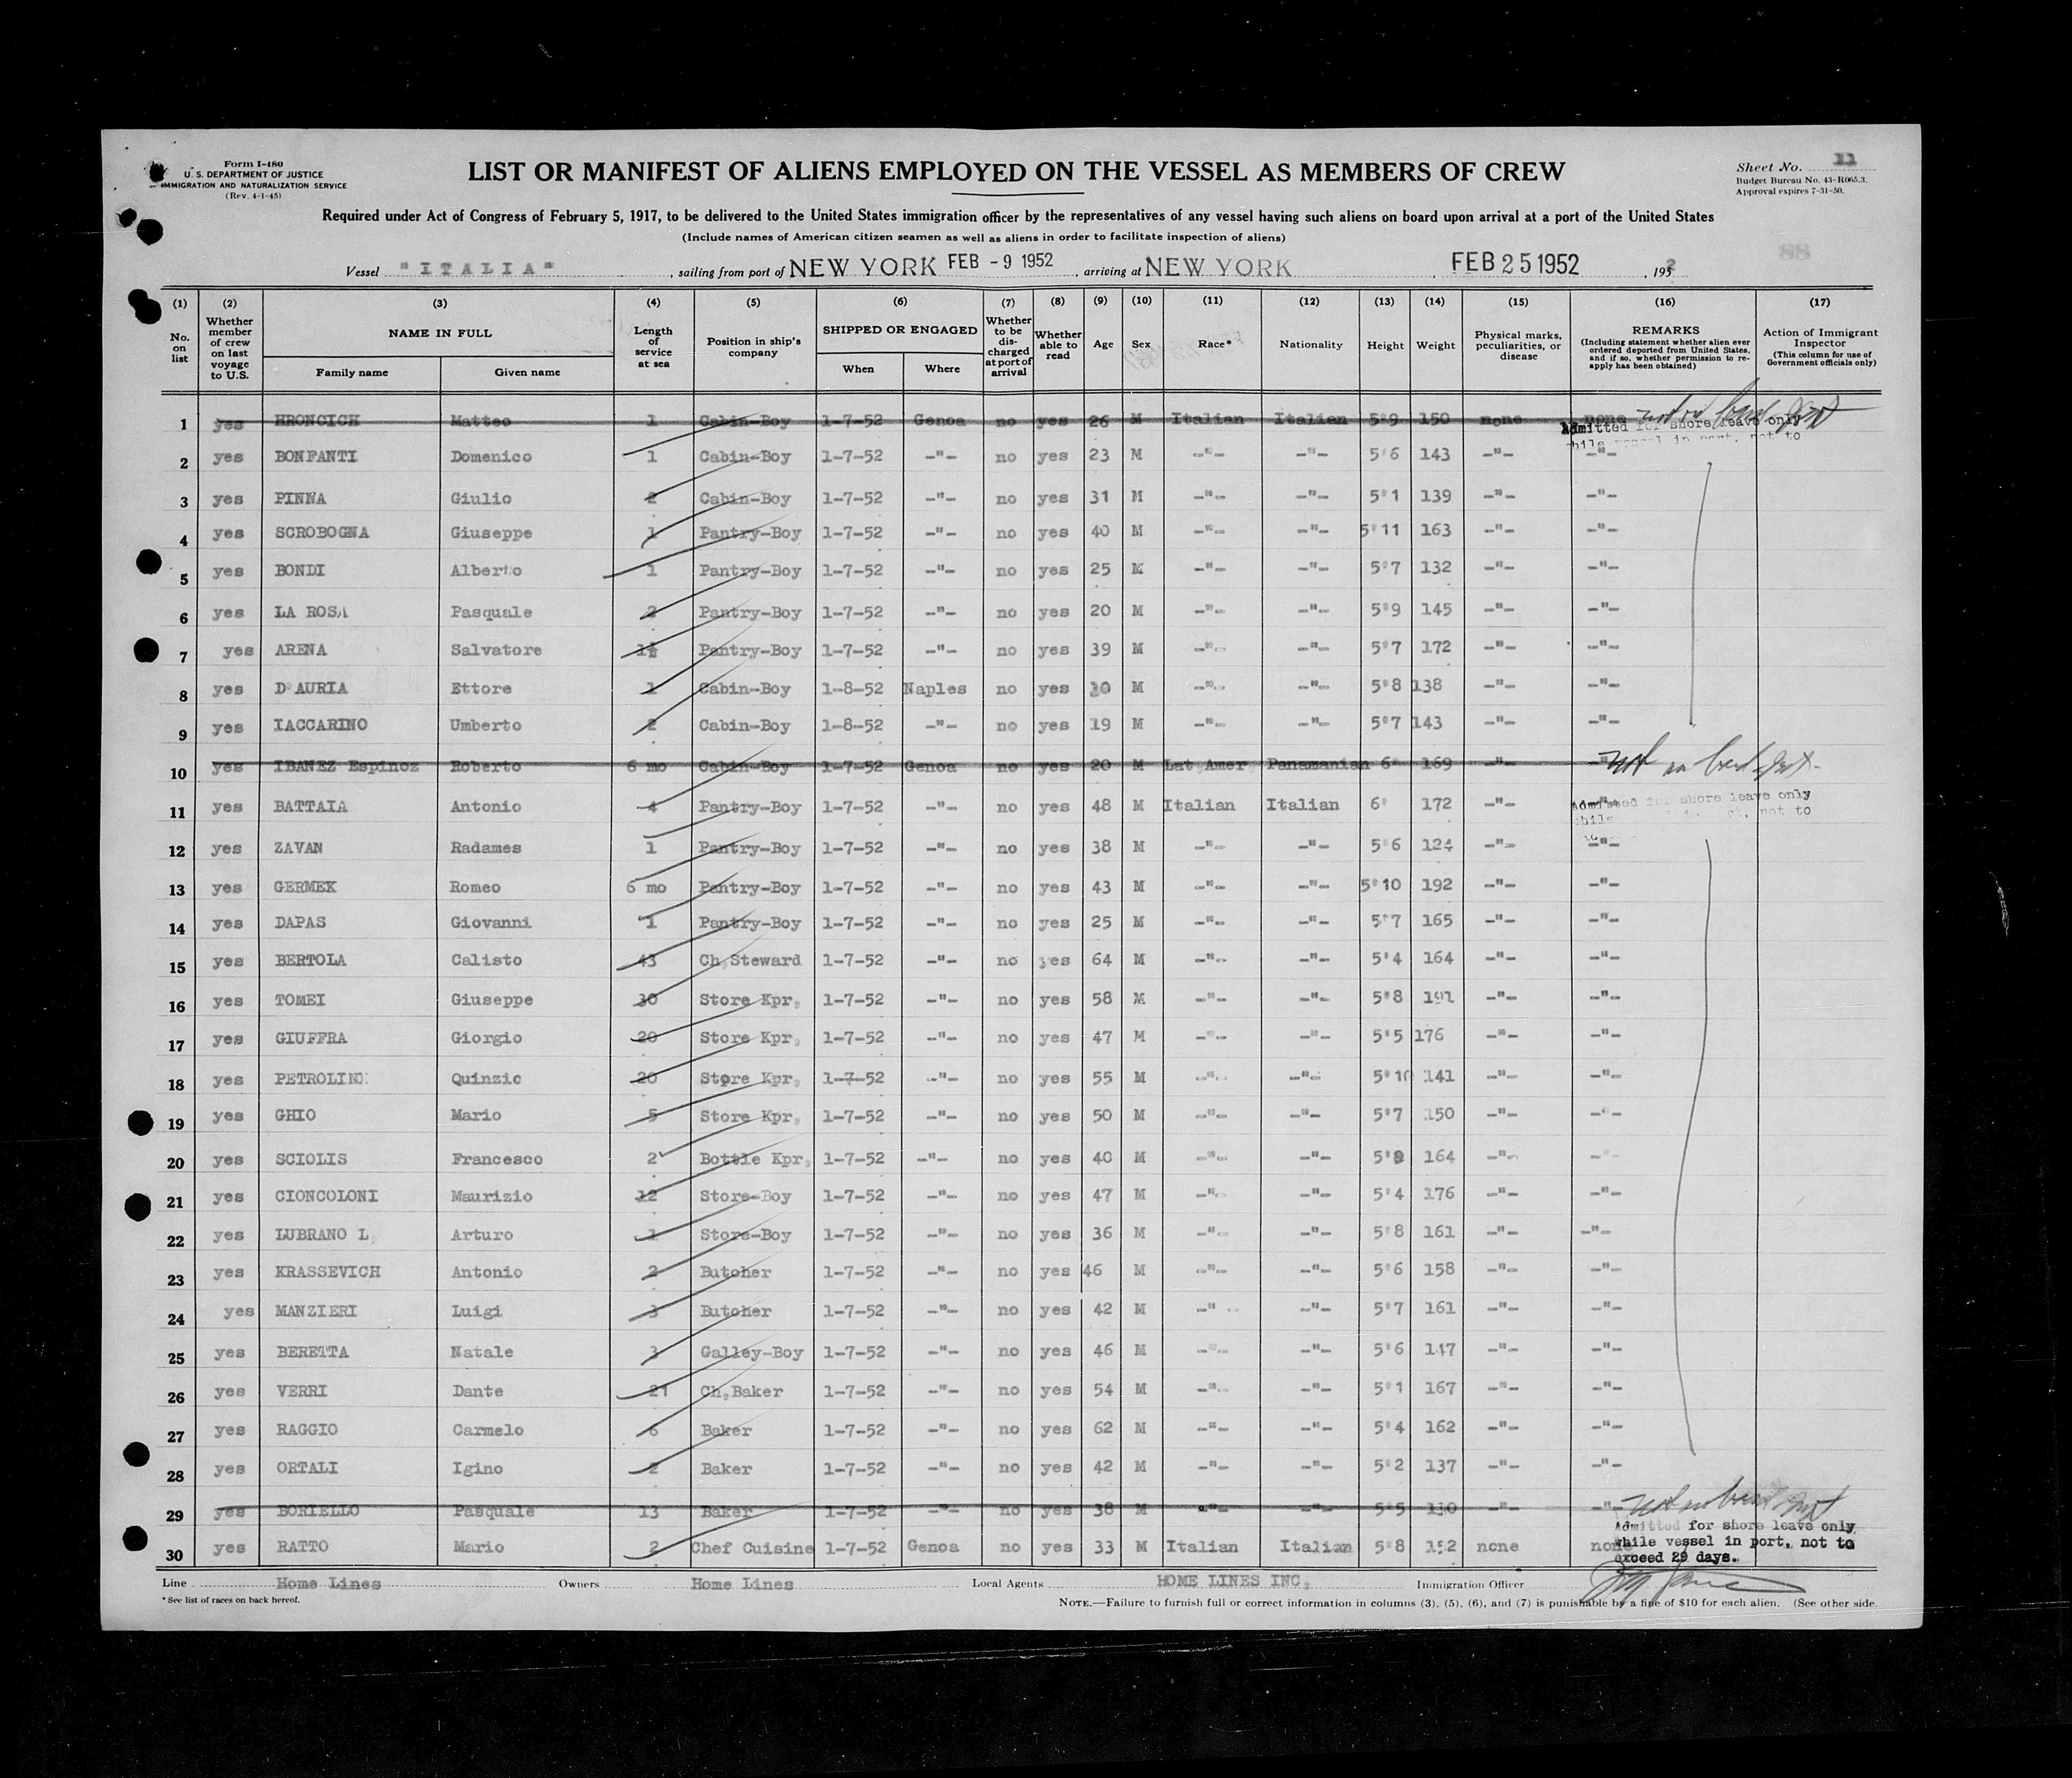 Form I-480
U. S. DEPARTMENT OF JUSTICE
IMMIGRATION AND NATURALIZATION SERVICE
(Rev. 4-1-45)
LIST OR MANIFEST OF ALIENS EMPLOYED ON THE VESSEL AS MEMBERS OF CREW
Sheet No. 11
Budget Bureau No. 43-R065.3.
Approval expires 7-31-50.
Required under Act of Congress of February 5, 1917, to be delivered to the United States immigration officer by the representatives of any vessel having such aliens on board upon arrival at a port of the United States
(Include names of American citizen seamen as well as aliens in order to facilitate inspection of aliens)
88
Vessel "ITALIA", sailing from port of NEW YORK FEB - 9 1952, arriving at NEW YORK, FEB 25 1952, 195
(1) (2) (3) (4) (5) (6) (7) (8) (9) (10) (11) (12) (13) (14) (15) (16) (17)
No. on list
Whether member of crew on last voyage to U.S.
NAME IN FULL
Family name
Given name
Length of service at sea
Position in ship's company
SHIPPED OR ENGAGED
When
Where
Whether to be discharged at port of arrival
Whether able to read
Age
Sex
Race*
Nationality
Height
Weight
Physical marks, peculiarities, or disease
REMARKS
(Including statement whether alien ever ordered deported from United States, and if so, whether permission to reapply has been obtained)
Action of Immigrant Inspector
(This column for use of Government officials only)
1 yes HRONCICH Matteo 1 Cabin-Boy 1-7-52 Genoa no yes 26 M Italian Italian 5'9 150 none none not on board
Admitted for shore leave only
while vessel in port, not to
2 yes BONFANTI Domenico 1 Cabin-Boy 1-7-52 -"- no yes 23 M -"- -"- 5'6 143 -"- -"-
3 yes PINNA Giulio 2 Cabin-Boy 1-7-52 -"- no yes 31 M -"- -"- 5'1 139 -"- -"-
4 yes SCROBOGNA Giuseppe 1 Pantry-Boy 1-7-52 -"- no yes 40 M -"- -"- 5'11 163 -"- -"-
5 yes BONDI Alberto 1 Pantry-Boy 1-7-52 -"- no yes 25 M -"- -"- 5'7 132 -"- -"-
6 yes LA ROSA Pasquale 2 Pantry-Boy 1-7-52 -"- no yes 20 M -"- -"- 5'9 145 -"- -"-
7 yes ARENA Salvatore 1½ Pantry-Boy 1-7-52 -"- no yes 39 M -"- -"- 5'7 172 -"- -"-
8 yes D'AURIA Ettore 1 Cabin-Boy 1-8-52 Naples no yes 30 M -"- -"- 5'8 138 -"- -"-
9 yes IACCARINO Umberto 2 Cabin-Boy 1-8-52 -"- no yes 19 M -"- -"- 5'7 143 -"- -"-
10 yes IBANEZ Espinoz Roberto 6 mo Cabin-Boy 1-7-52 Genoa no yes 20 M Lat, Amer, Panamanian 6' 169 -"- -"- not on board
11 yes BATTAIA Antonio 4 Pantry-Boy 1-7-52 -"- no yes 48 M Italian Italian 6' 172 -"- -"-
Admitted for shore leave only
while not to
12 yes ZAVAN Radames 1 Pantry-Boy 1-7-52 -"- no yes 38 M -"- -"- 5'6 124 -"- -"-
13 yes GERMEK Romeo 6 mo Pantry-Boy 1-7-52 -"- no yes 43 M -"- -"- 5'10 192 -"- -"-
14 yes DAPAS Giovanni 1 Pantry-Boy 1-7-52 -"- no yes 25 M -"- -"- 5'7 165 -"- -"-
15 yes BERTOLA Calisto 43 Ch, Steward 1-7-52 -"- no yes 64 M -"- -"- 5'4 164 -"- -"-
16 yes TOMEI Giuseppe 30 Store Kpr, 1-7-52 -"- no yes 58 M -"- -"- 5'8 191 -"- -"-
17 yes GIUFFRA Giorgio 20 Store Kpr, 1-7-52 -"- no yes 47 M -"- -"- 5'5 176 -"- -"-
18 yes PETROLINI Quinzio 20 Store Kpr, 1-7-52 -"- no yes 55 M -"- -"- 5'10 141 -"- -"-
19 yes GHIO Mario 5 Store Kpr, 1-7-52 -"- no yes 50 M -"- -"- 5'7 150 -"- -"-
20 yes SCIOLIS Francesco 2 Bottle Kpr, 1-7-52 -"- no yes 40 M -"- -"- 5'9 164 -"- -"-
21 yes CIONCOLONI Maurizio 12 Store-Boy 1-7-52 -"- no yes 47 M -"- -"- 5'4 176 -"- -"-
22 yes LUBRANO L, Arturo 1 Store-Boy 1-7-52 -"- no yes 36 M -"- -"- 5'8 161 -"- -"-
23 yes KRASSEVICH Antonio 2 Butcher 1-7-52 -"- no yes 46 M -"- -"- 5'6 158 -"- -"-
24 yes MANZIERI Luigi 3 Butcher 1-7-52 -"- no yes 42 M -"- -"- 5'7 161 -"- -"-
25 yes BERETTA Natale 3 Galley-Boy 1-7-52 -"- no yes 46 M -"- -"- 5'6 147 -"- -"-
26 yes VERRI Dante 21 Ch, Baker 1-7-52 -"- no yes 54 M -"- -"- 5'1 167 -"- -"-
27 yes RAGGIO Carmelo 6 Baker 1-7-52 -"- no yes 62 M -"- -"- 5'4 162 -"- -"-
28 yes ORTALI Igino 2 Baker 1-7-52 -"- no yes 42 M -"- -"- 5'2 137 -"- -"-
29 yes BORIELLO Pasquale 13 Baker 1-7-52 -"- no yes 38 M -"- -"- 5'5 130 -"- -"- not on board
Admitted for shore leave only
30 yes RATTO Mario 2 Chef Cuisine 1-7-52 Genoa no yes 33 M Italian Italian 5'8 152 none none
while vessel in port, not to
exceed 29 days.
Line Home Lines Owners Home Lines Local Agents HOME LINES INC, Immigration Officer
* See list of races on back hereof.
NOTE.—Failure to furnish full or correct information in columns (3), (5), (6), and (7) is punishable by a fine of $10 for each alien. (See other side.